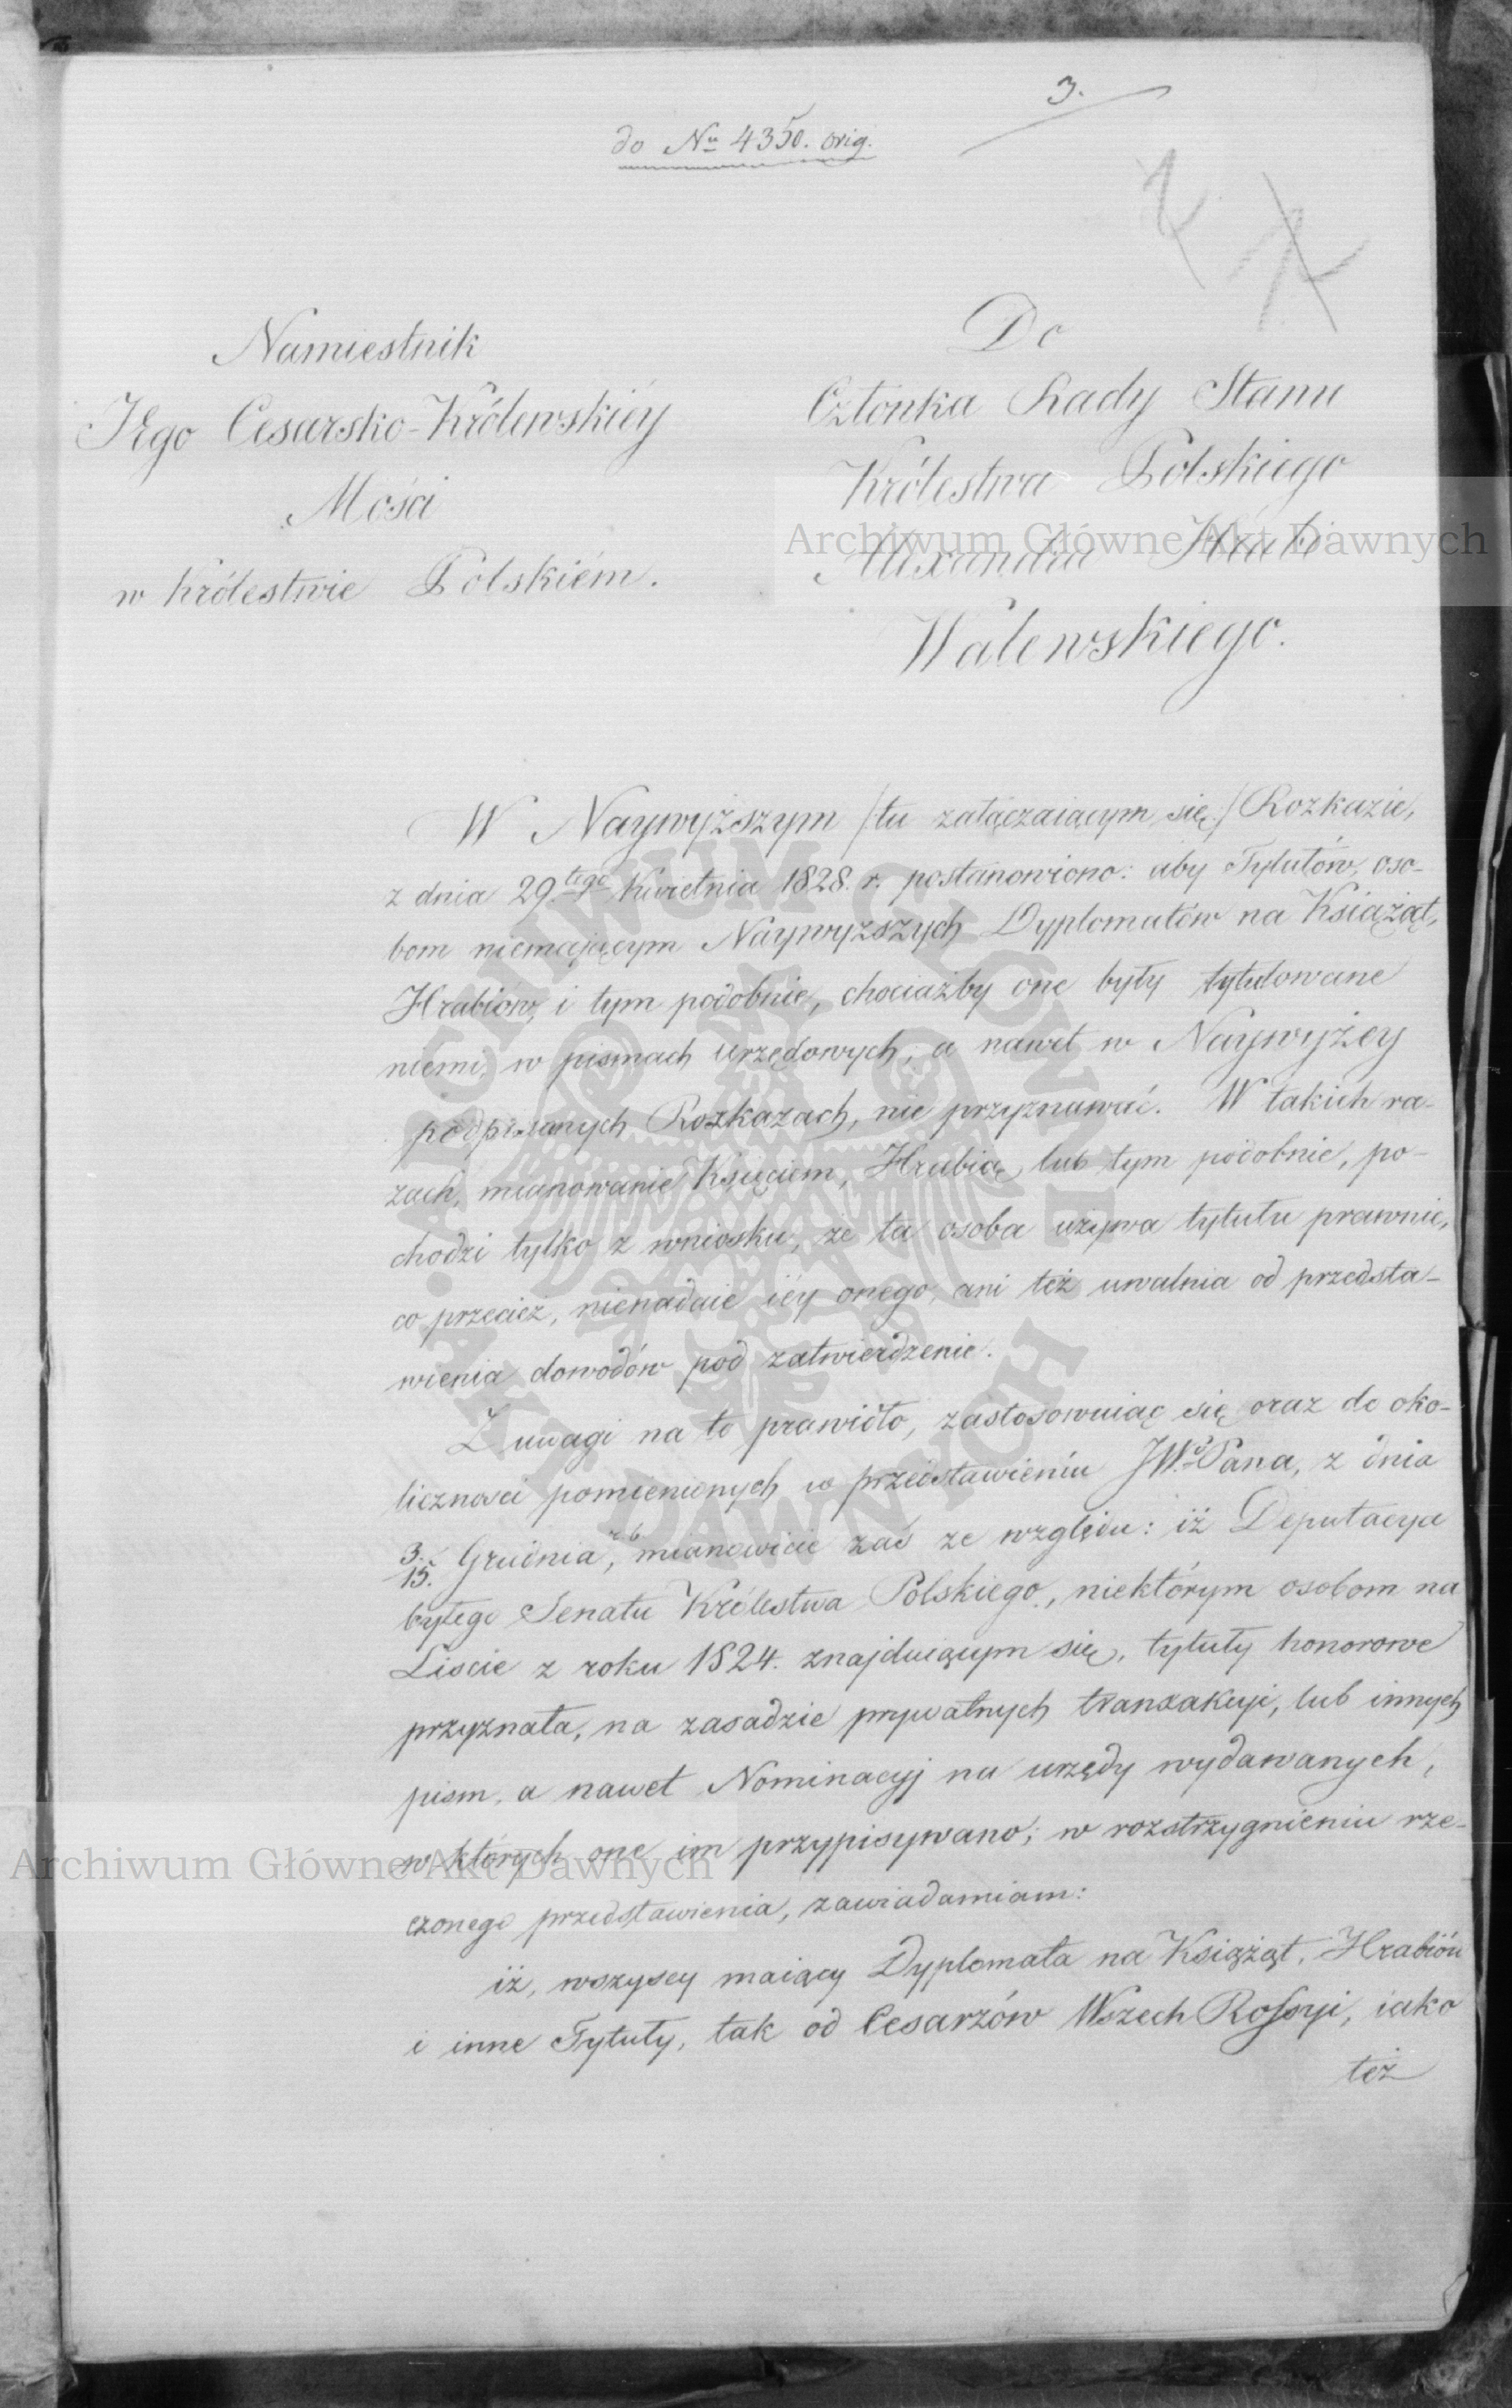 3.
do Nu 4350. orig.
Namiestnik
Jego Cesarsko-Królewskiéy
Mości
w Królestwie Polskiém.
Do
Członka Rady Stanu
Królestwa Polskiego
Alexandra Hrabi
Walewskiego.
W Naywyższym /tu załączaiącym się/ Rozkazie,
z dnia 29.tego Kwietnia 1828. r. postanowiono: aby Tytułów, oso-
bom niemającym Naywyższych Dyplomatów na Książąt,
Hrabiów, i tym podobnie, chociażby one były tytułowane
niemi, w pismach urzędowych; a nawet w Naywyżey
podpisanych Rozkazach, nie przyznawać. W takich ra-
zach, mianowanie Księciem, Hrabią, lub tym podobnie, po-
chodzi tylko z wniosku, że ta osoba używa tytułu prawnie,
co przecież, nienadaie iéy onego, ani też uwalnia od przedsta-
wienia dowodów pod zatwierdzenie.
Z uwagi na to prawidło, zastosowuiąc się oraz do oko-
liczności pomienionych w przedstawieniu JWo Pana, z dnia
3./15. Grudnia, r. b. mianowicie zaś ze względu: iż Deputacya
byłego Senatu Królestwa Polskiego, niektórym osobom na
Liscie z roku 1824. znajduiącym się, tytuły honorowe
przyznała, na zasadzie prywatnych tranzakcyi, lub innych
pism, a nawet Nominacyj na urzędy wydawanych,
w których one im przypisywano; w rozstrzygnieniu rze-
czonego przedstawienia, zawiadamiam:
iż, wszyscy maiący Dyplomata na Książąt, Hrabiów
i inne Tytuły, tak od Cesarzów Wszech Rossyi, iako
też
Archiwum Główne Akt Dawnych
Archiwum Główne Akt Dawnych
ARCHIWUM GŁÓWNE AKT DAWNYCH